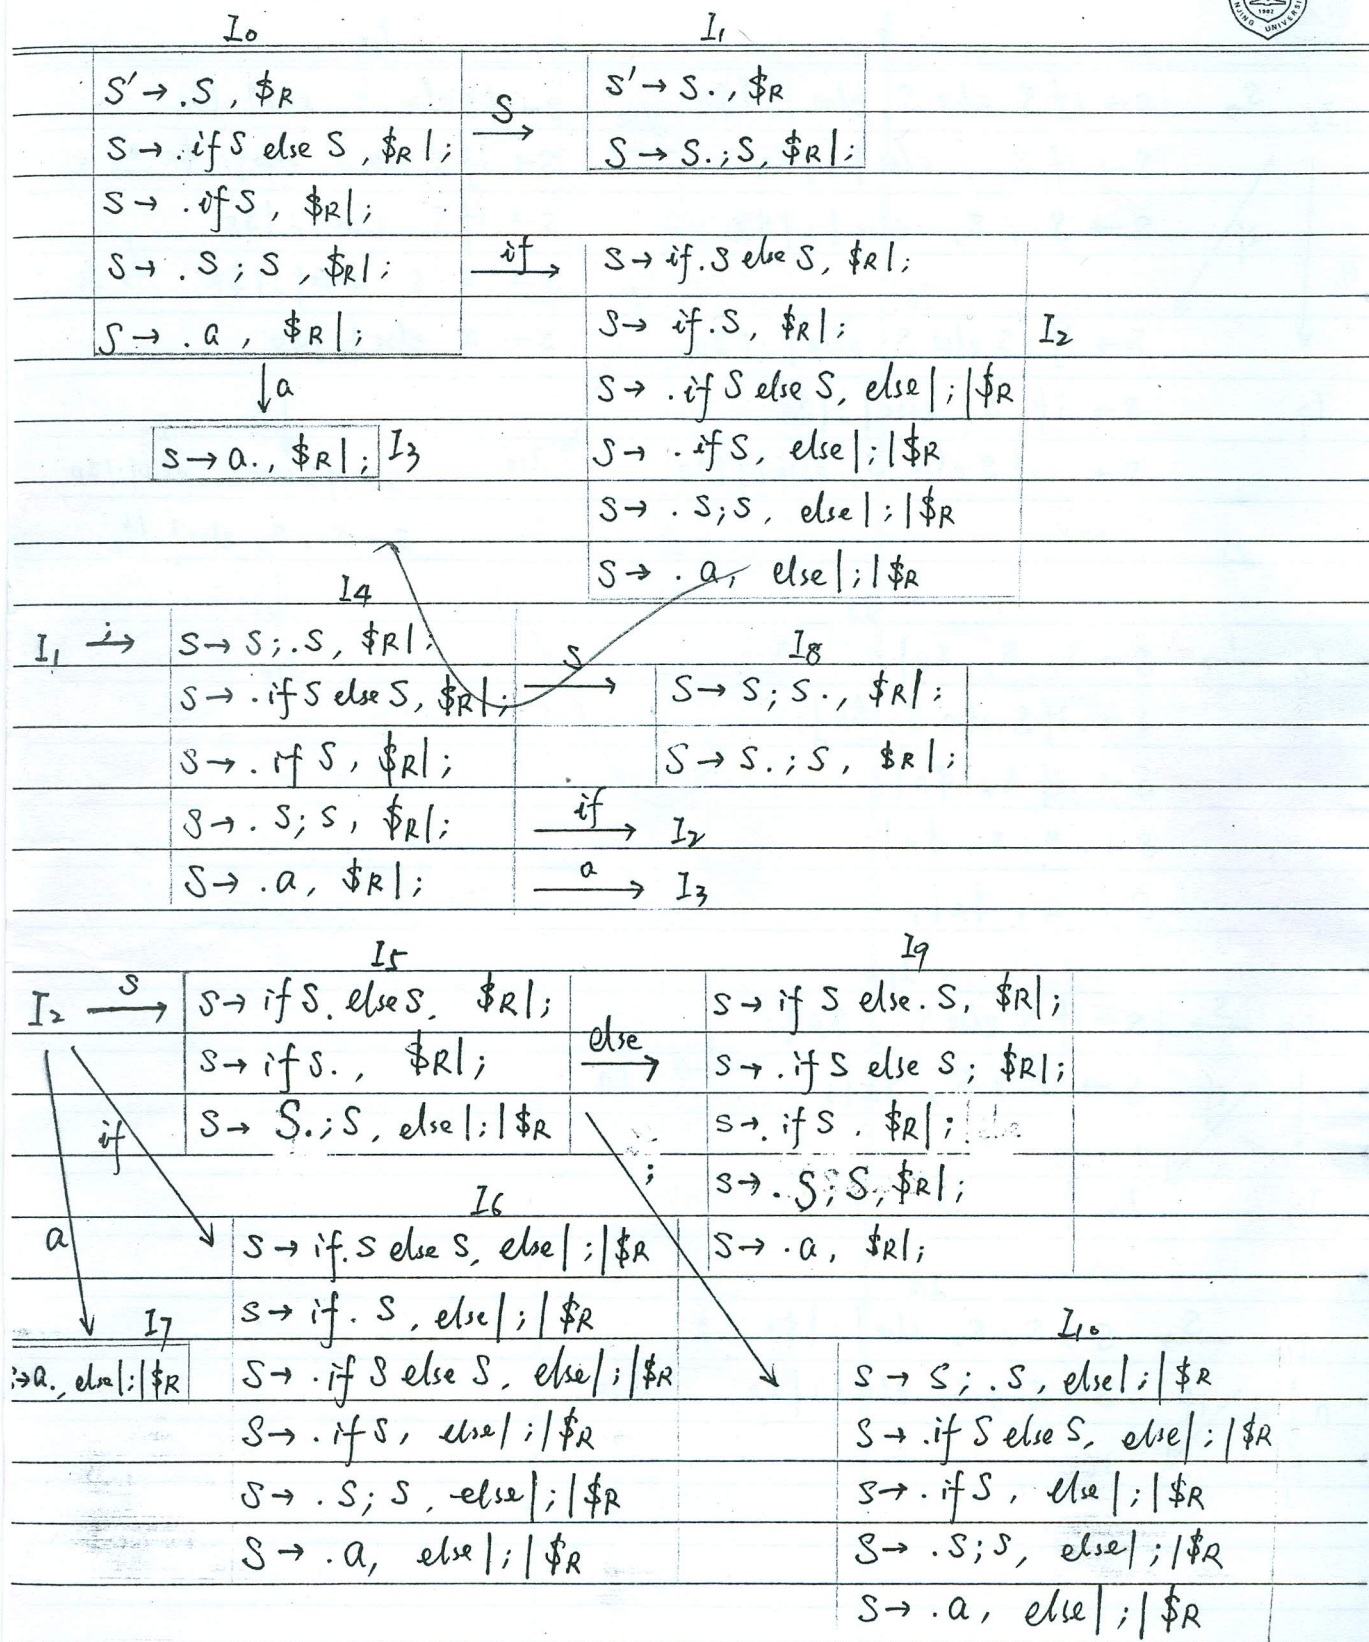 I0 I1
S' → .S , $R
S → .if S else S , $R | ;
S → .if S , $R | ;
S → .S ; S , $R | ;
S → .a , $R | ;
S
S' → S. , $R
S → S. ; S , $R | ;
if
S → if .S else S , $R | ;
S → if .S , $R | ;
S → .if S else S , else | ; | $R
S → .if S , else | ; | $R
S → .S ; S , else | ; | $R
S → .a , else | ; | $R
I2
a
S → a. , $R | ; I3
I4
I1 ; →
S → S ; .S , $R | ;
S → .if S else S , $R | ;
S → .if S , $R | ;
S → .S ; S , $R | ;
S → .a , $R | ;
S
I8
S → S ; S. , $R | ;
S → S. ; S , $R | ;
if → I2
a → I3
I5
I2 S →
S → if S. else S , $R | ;
S → if S. , $R | ;
S → S. ; S , else | ; | $R
else
I9
S → if S else .S , $R | ;
S → .if S else S ; $R | ;
S → .if S , $R | ;
S → .S ; S , $R | ;
S → .a , $R | ;
if
;
a
I6
S → if .S else S , else | ; | $R
S → if .S , else | ; | $R
S → .if S else S , else | ; | $R
S → .if S , else | ; | $R
S → .S ; S , else | ; | $R
S → .a , else | ; | $R
I7
→ a. , else | ; | $R
I10
S → S ; .S , else | ; | $R
S → .if S else S , else | ; | $R
S → .if S , else | ; | $R
S → .S ; S , else | ; | $R
S → .a , else | ; | $R